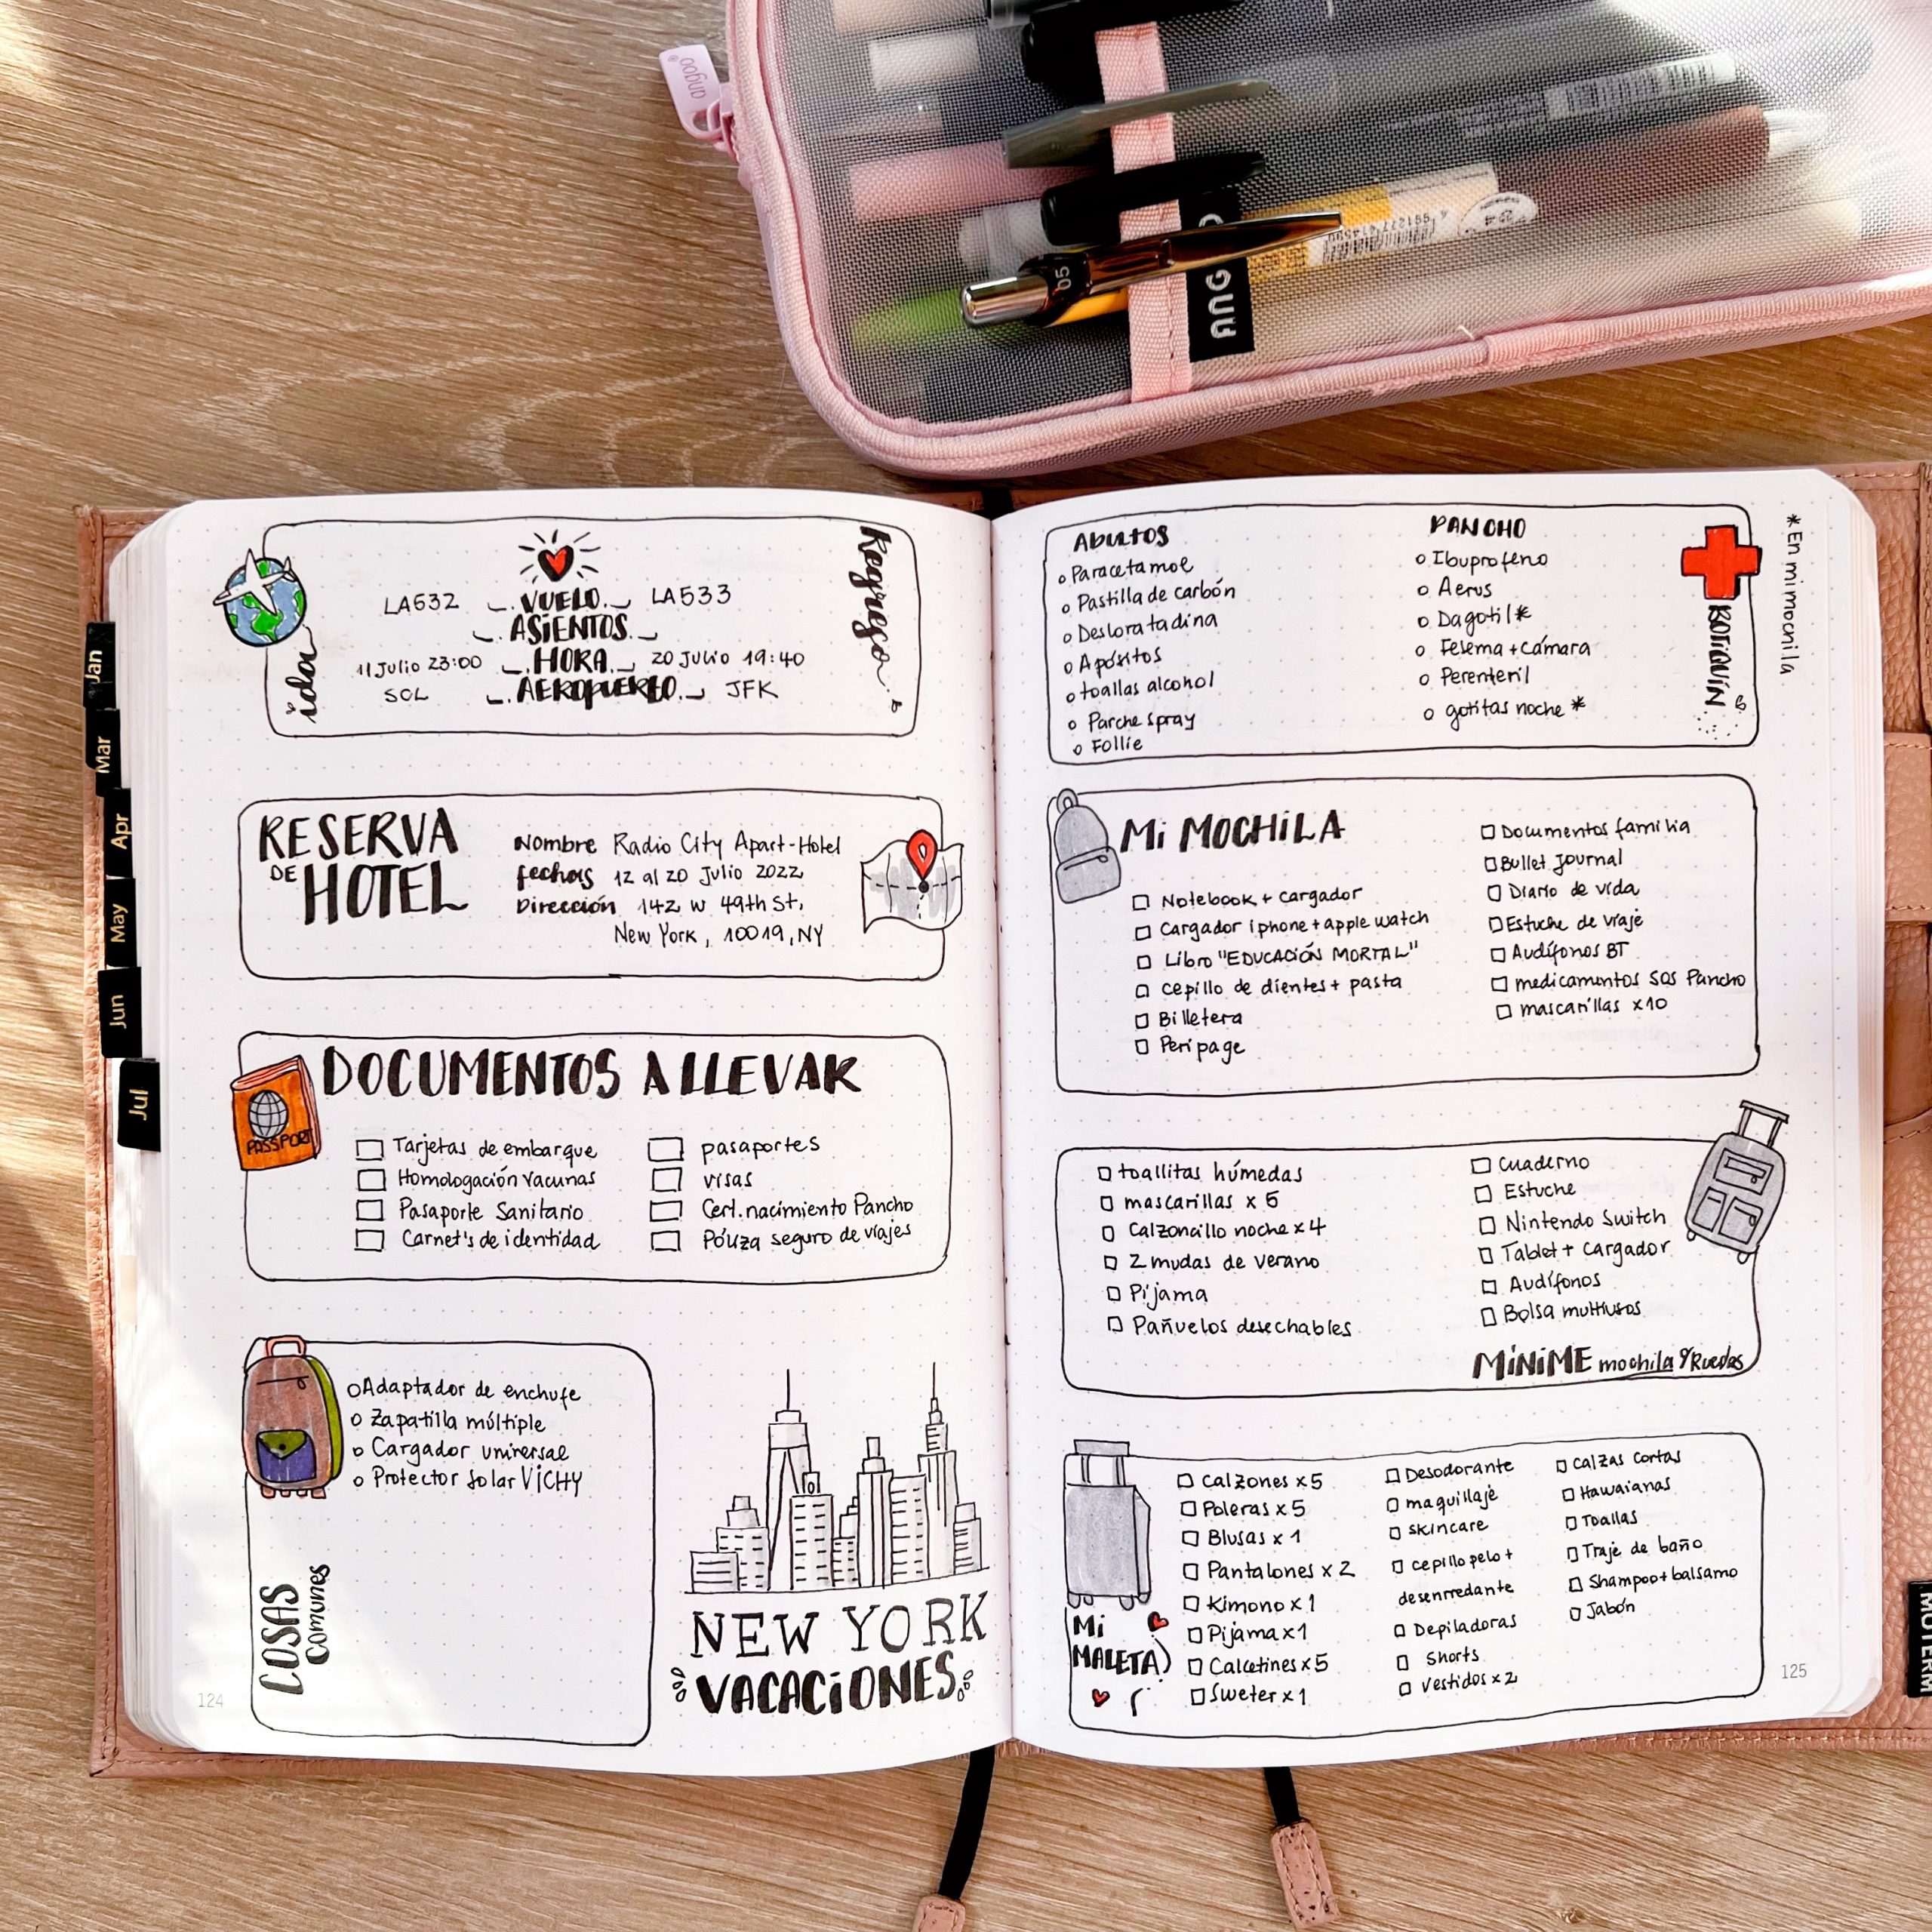 ida
Regreso
LA532 VUELO LA533
ASIENTOS
11 Julio 23:00 HORA 20 Julio 19:40
SCL AEROPUERTO JFK
RESERVA
DE HOTEL
Nombre Radio City Apart-Hotel
fechas 12 al 20 Julio 2022
Dirección 142 w 49th St,
New York, 10019, NY
DOCUMENTOS A LLEVAR
PASSPORT
Tarjetas de embarque
Homologación vacunas
Pasaporte Sanitario
Carnet's de identidad
pasaportes
visas
Cert. nacimiento Pancho
Póliza seguro de viajes
Adaptador de enchufe
Zapatilla múltiple
Cargador universal
Protector solar VICHY
COSAS
comunes
NEW YORK
VACACIONES
124
Jan
Mar
Apr
May
Jun
Jul
ADULTOS
Paracetamol
Pastilla de carbón
Desloratadina
Apósitos
toallas alcohol
Parche spray
Follie
PANCHO
Ibuprofeno
Aerus
Dagotil*
Felema + cámara
Perenteril
gotitas noche *
BOTIQUÍN
* En mi mochila
Mi MOCHILA
Notebook + cargador
Cargador iphone + apple watch
Libro "EDUCACIÓN MORTAL"
cepillo de dientes + pasta
Billetera
Peripage
Documentos familia
Bullet Journal
Diario de vida
Estuche de viaje
Audífonos BT
medicamentos SOS Pancho
mascarillas x10
toallitas húmedas
mascarillas x 5
Calzoncillo noche x 4
2 mudas de verano
Pijama
Pañuelos desechables
Cuaderno
Estuche
Nintendo Switch
Tablet + cargador
Audífonos
Bolsa multiusos
MINIME mochila Ruedas
Mi
MALETA
Calzones x 5
Poleras x 5
Blusas x 1
Pantalones x 2
Kimono x 1
Pijama x 1
Calcetines x 5
Sweter x 1
Desodorante
maquillaje
skincare
cepillo pelo +
desenrredante
Depiladoras
Shorts
vestidos x 2
Calzas cortas
Hawaianas
Toallas
Traje de baño
Shampoo + balsamo
Jabón
125
angoo
05
24